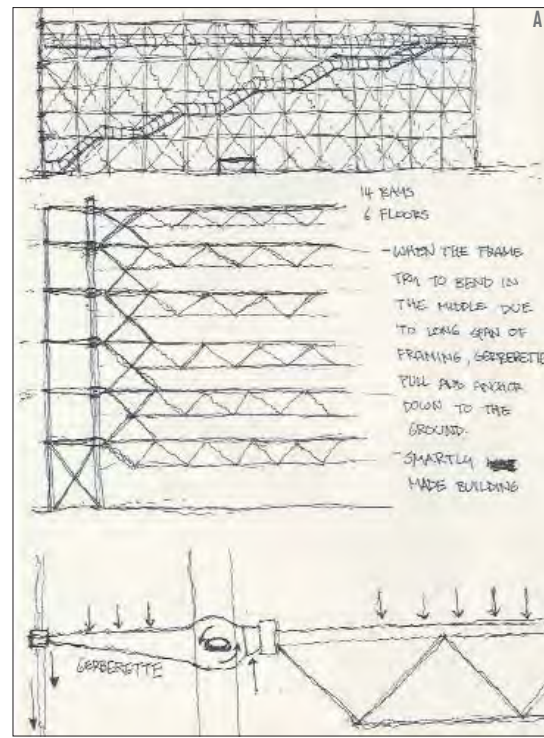 A
14 BAYS
6 FLOORS
- WHEN THE FRAME
TRY TO BEND IN
THE MIDDLE DUE
TO LONG SPAN OF
FRAMING, GERBERETTE
PULL AND ANCHOR
DOWN TO THE
GROUND.
- SMARTLY
MADE BUILDING
GERBERETTE